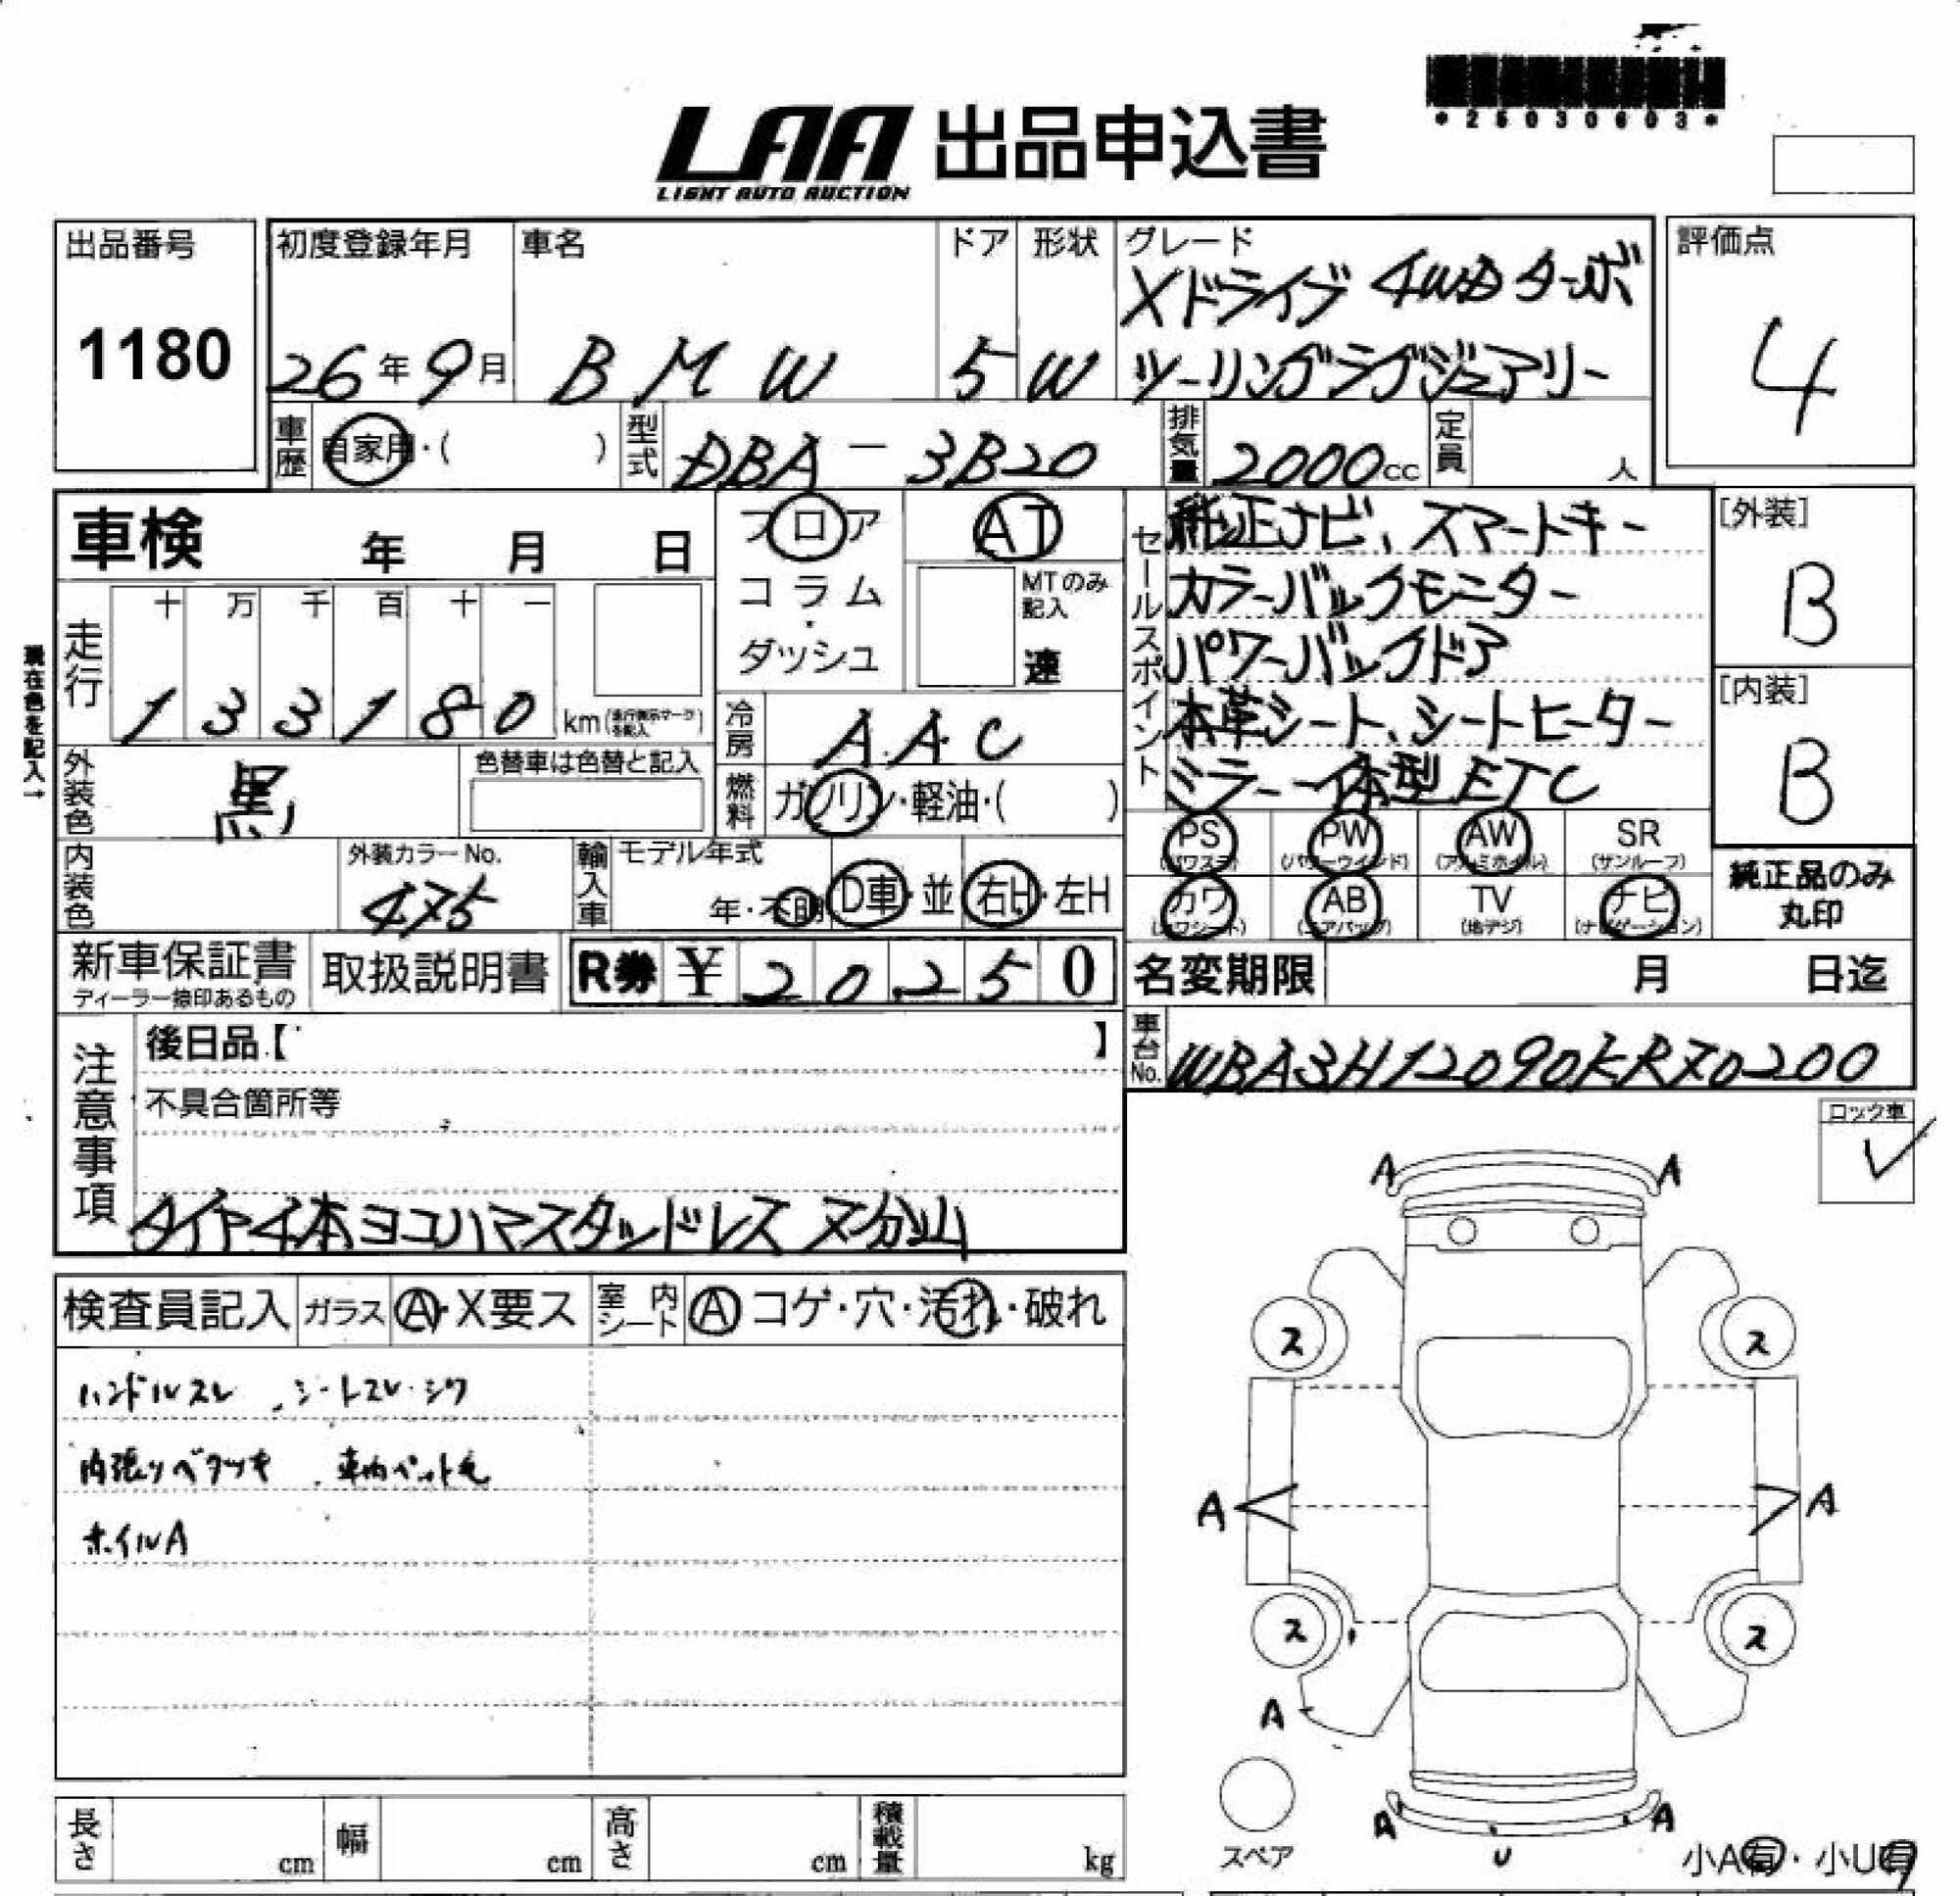 *25030603*
LAA 出品申込書
LIGHT AUTO AUCTION
出品番号
1180
初度登録年月
26年9月
車名
BMW
ドア
5
形状
W
グレード
Xドライブ 4WDターボ
ツーリングラグジュアリー
評価点
4
車歴
自家用・( )
型式
DBA-3B20
排気量
2000cc
定員
人
車検 年 月 日
フロア
コラム・
ダッシュ
AT
MTのみ記入
速
走行
十 万 千 百 十 一
133180 km
現在色を記入→
冷房
A.A.C
燃料
ガソリン・軽油・( )
外装色
黒
色替車は色替と記入
内装色
外装カラーNo.
475
輸入車
モデル年式
年・不明
D車・並
右H・左H
セールスポイント
純正ナビ、スマートキー
カラーバックモニター
パワーバックドア
本革シート、シートヒーター
ミラー一体型ETC
[外装]
B
[内装]
B
PS (パワステ)
PW (パワーウインド)
AW (アルミホイル)
SR (サンルーフ)
カワ (カワシート)
AB (エアバッグ)
TV (地デジ)
ナビ (ナビゲーション)
純正品のみ
丸印
新車保証書
ディーラー捺印あるもの
取扱説明書
R券 ¥ 20,250
名変期限 月 日迄
車台No.
WBA3H12090KRX0200
注意事項
後日品【 】
不具合箇所等
タイヤ4本ヨコハマスタッドレス ヌ分山
ロック車
✓
検査員記入
ガラス
A・X要ス
室内シート
A コゲ・穴・汚れ・破れ
ハンドルスレ 、シートスレ・シワ
内張りベタツキ 、車内ペット毛
ホイルA
A A
ス ス
A A
ス ス
A
A A
U
スペア
小A有・小U有
長さ cm
幅 cm
高さ cm
積載量 kg